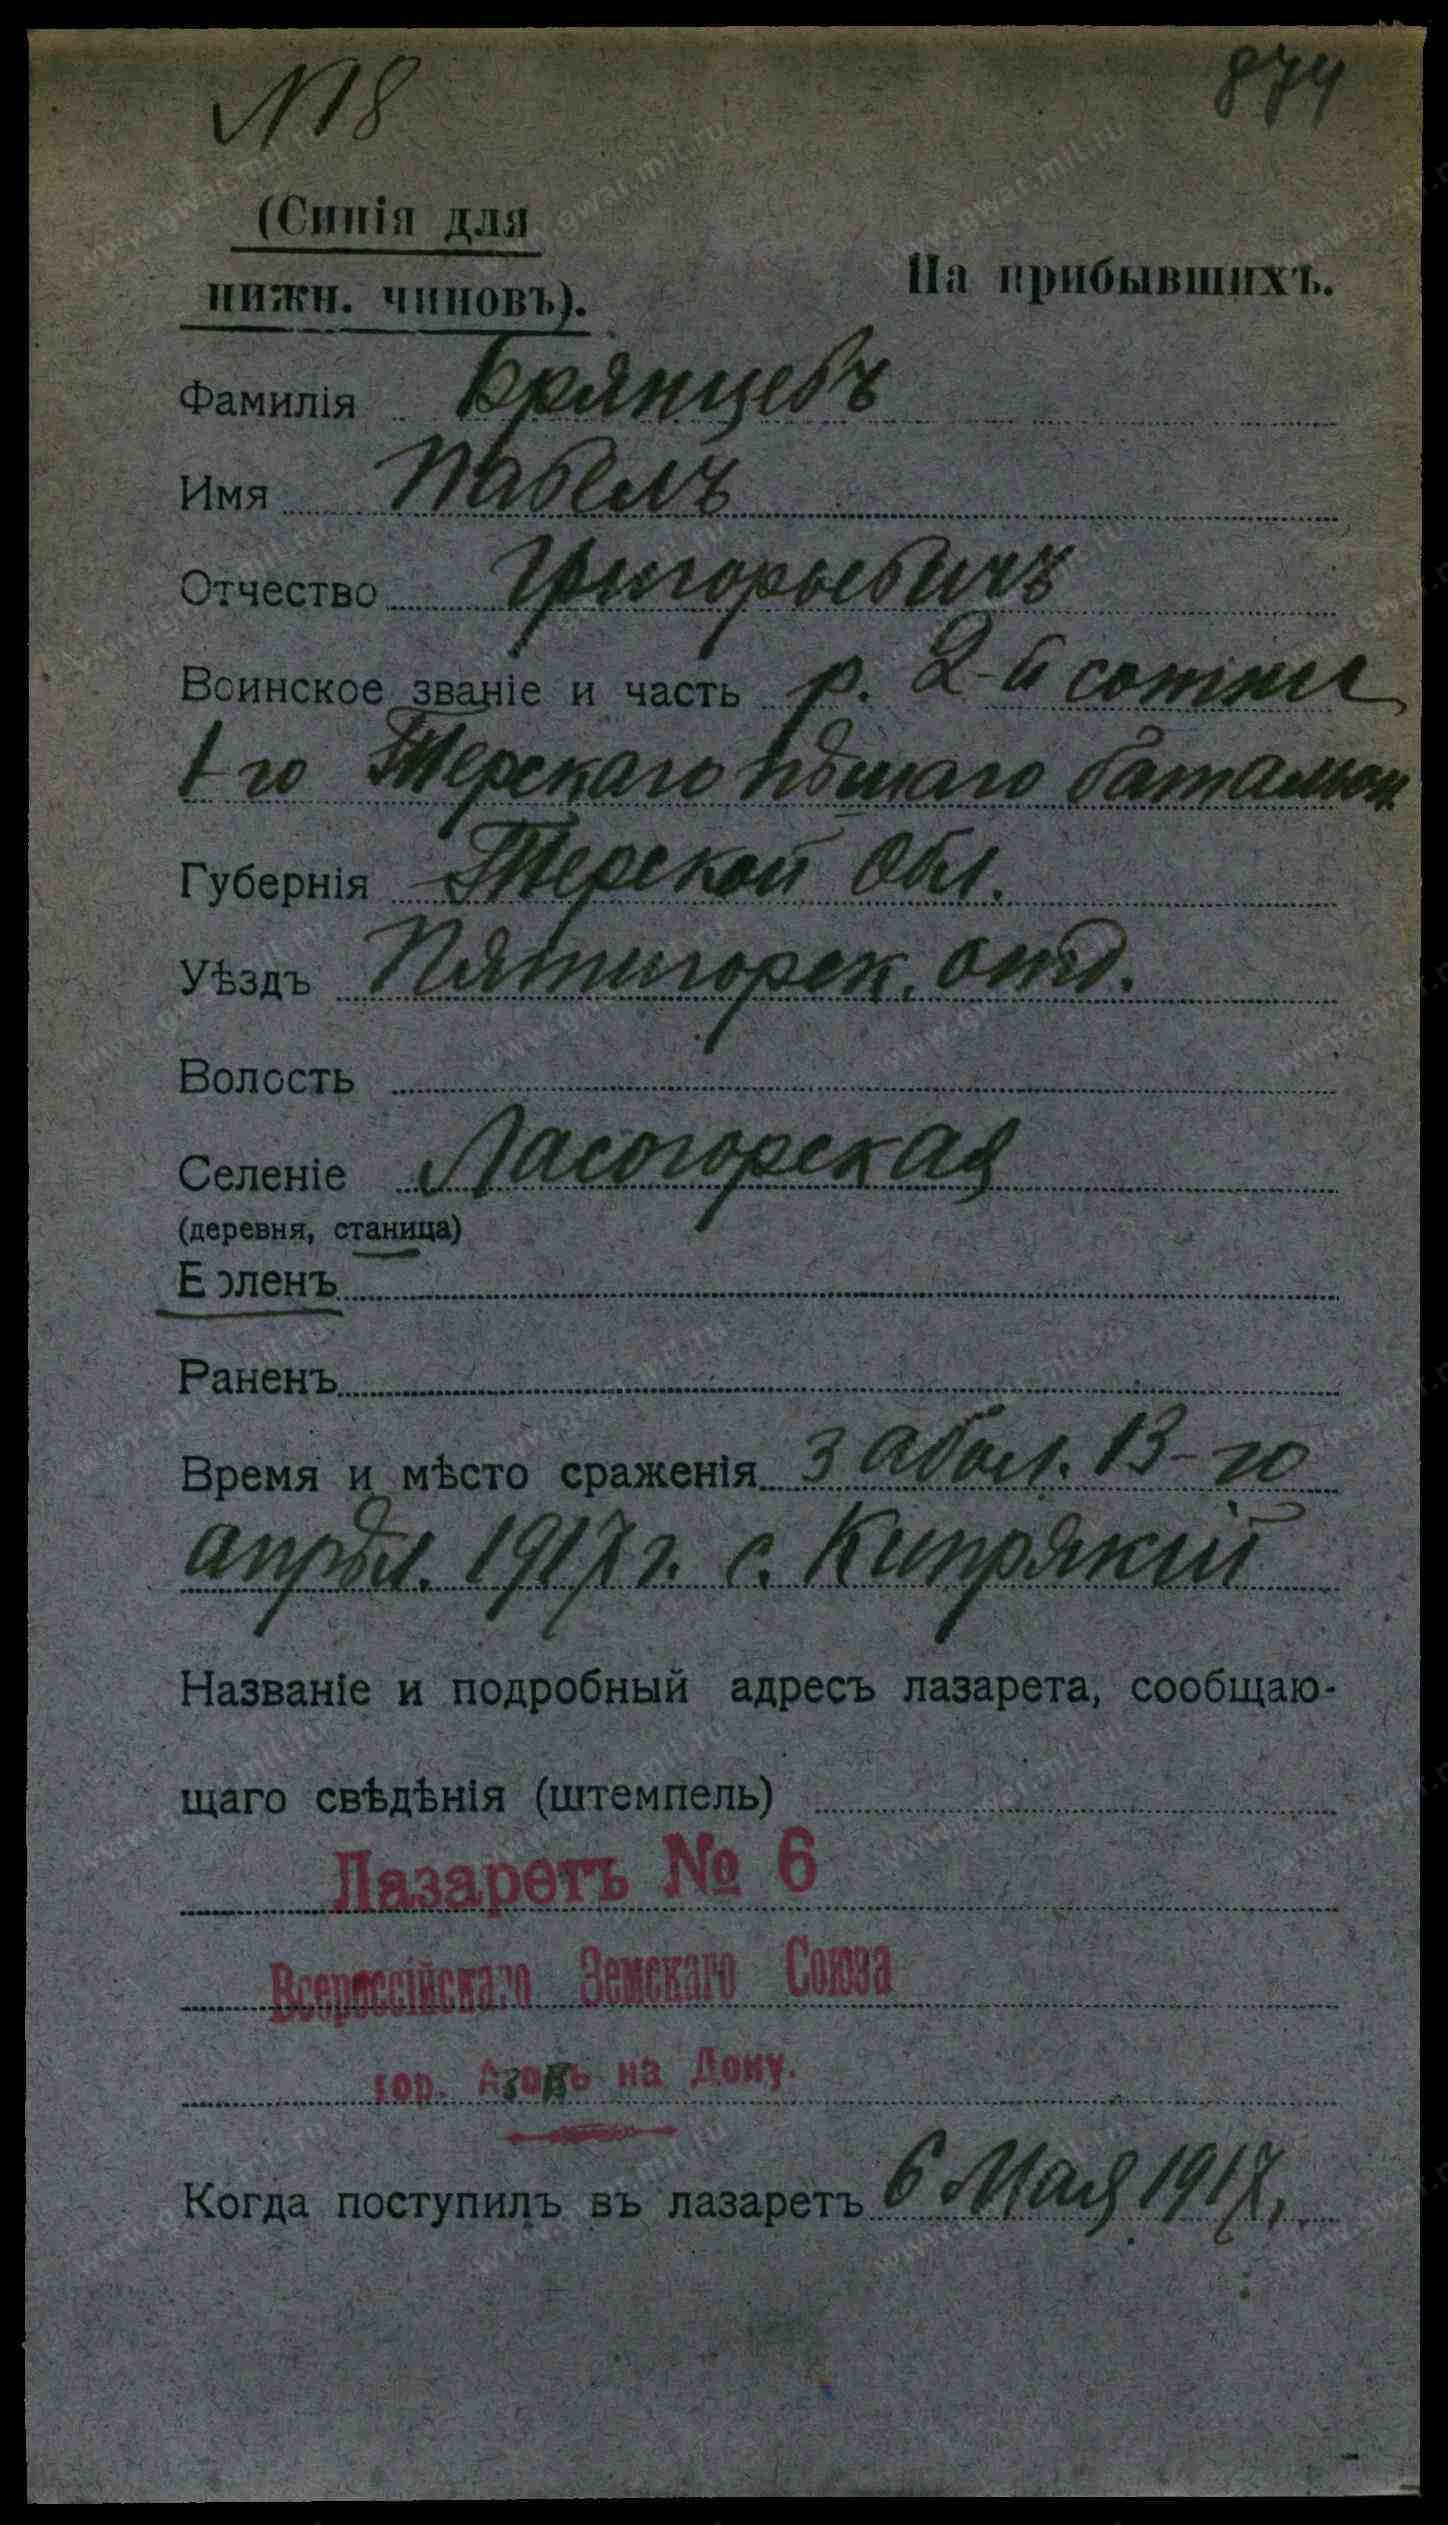 № 18
874
(Синія для
нижн. чиновъ).
На прибывшихъ.
Фамилія Брянцевъ
Имя Павелъ
Отчество Григорьевичъ
Воинское званіе и часть р. 2-й сотни
1-го Терскаго пѣшаго баталіон.
Губернія Терской Обл.
Уѣздъ Пятигорск. отд.
Волость
Селеніе Лысогорская
(деревня, станица)
Боленъ
Раненъ
Время и мѣсто сраженія забол. 13-го
апрѣл. 1917 г. с. Кипрякій
Названіе и подробный адресъ лазарета, сообщаю-
щаго свѣдѣнія (штемпель)
Лазаретъ № 6
Всероссійскаго Земскаго Союза
гор. Азовъ на Дону.
Когда поступилъ въ лазаретъ 6 Мая 1917,